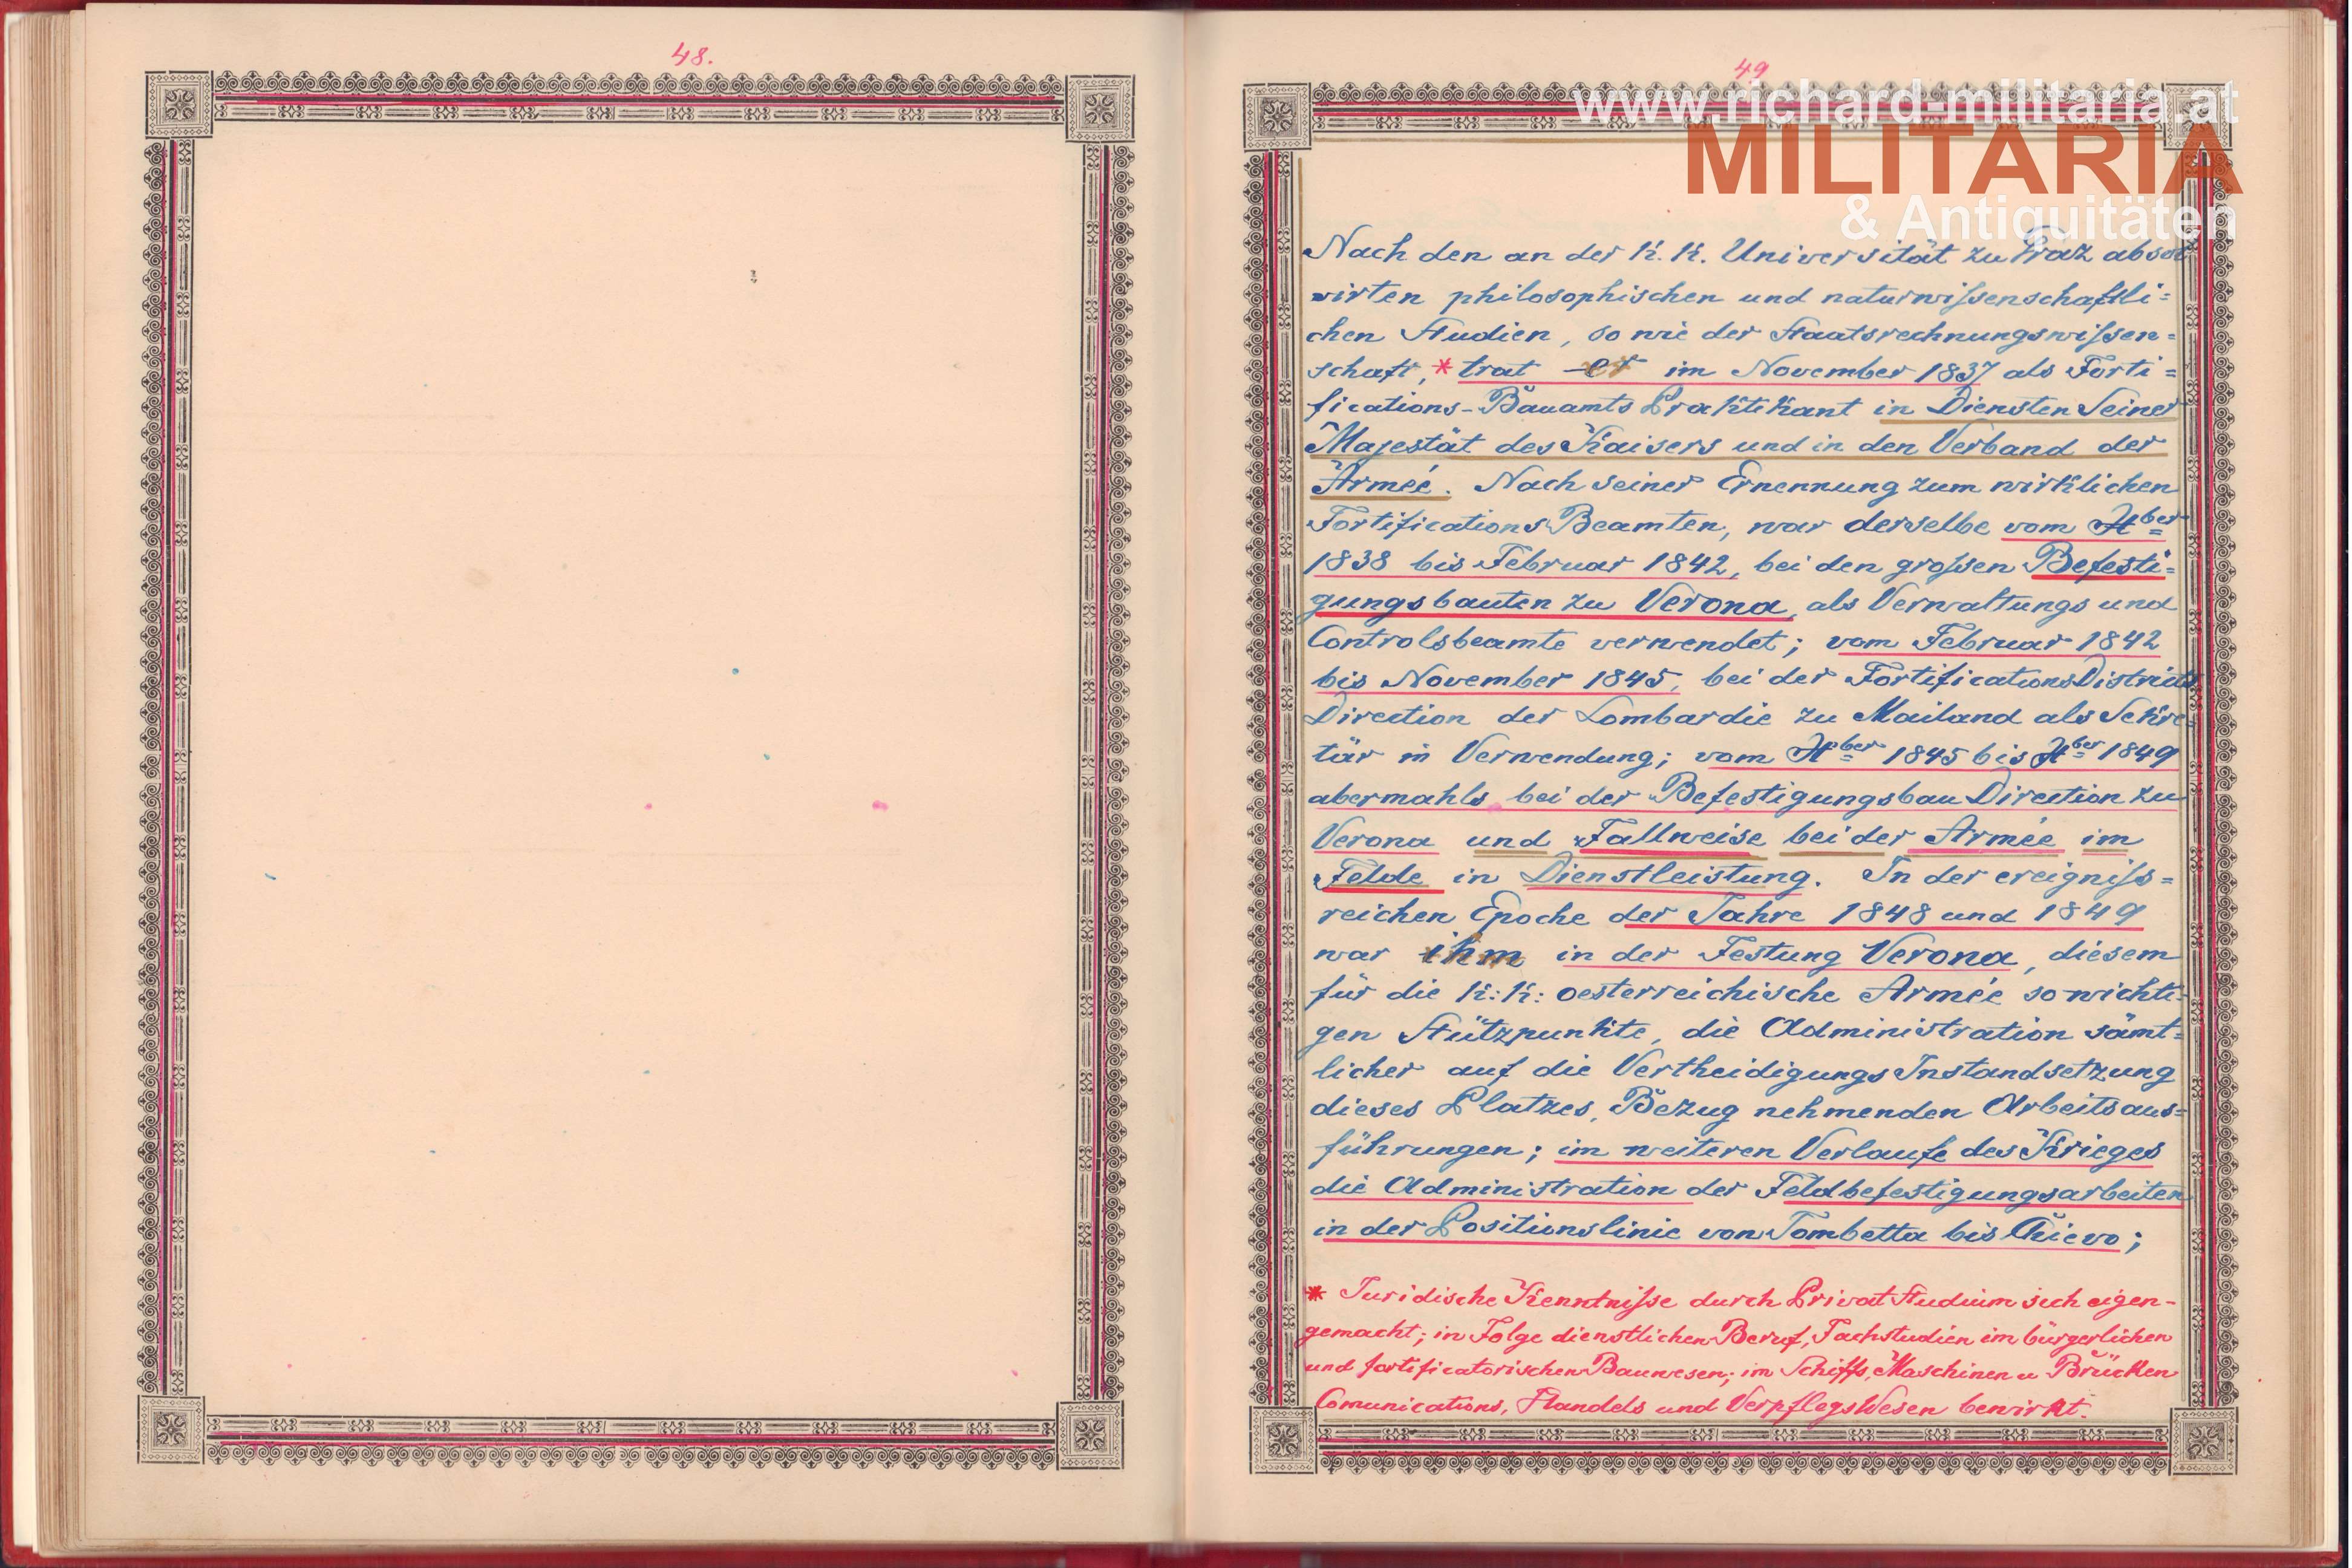 48.
49
www.richard-militaria.at
MILITARIA
& Antiquitäten
Nach den an der K. K. Universität zu Graz absol
virten philosophischen und naturwissenschaftli=
chen Studien, so wie der Staatsrechnungswissen=
schaft, * trat er im November 1837 als Forti=
fications-Bauamts Praktikant in Diensten Seiner
Majestät des Kaisers und in den Verband der
Armée. Nach seiner Ernennung zum wirklichen
Fortifications Beamten, war derselbe vom
1838 bis Februar 1842, bei den grossen Befesti=
gungsbauten zu Verona, als Verwaltungs und
Controlsbeamte verwendet; vom Februar 1842
bis November 1845, bei der Fortifications Districts
Direction der Lombardie zu Mailand als Sekre=
tär in Verwendung; vom 1845 bis 1849
abermahls bei der Befestigungsbau Direction zu
Verona und Fallweise bei der Armée im
Felde in Dienstleistung. In der ereigniss=
reichen Epoche der Jahre 1848 und 1849
war ihm in der Festung Verona, diesem
für die K: K: oesterreichische Armée so wichti=
gen Stützpunkte, die Administration sämt=
licher auf die Vertheidigungs Instandsetzung
dieses Platzes, Bezug nehmenden Arbeitsaus=
führungen; im weiteren Verlaufe des Krieges
die Administration der Feldbefestigungsarbeiten
in der Positionslinie von Tombetta bis Chievo;
* Juridische Kenntnisse durch Privat Studium sich eigen-
gemacht; in Folge dienstlichen Beruf, Fachstudien im bürgerlichen
und fortificatorischen Bauwesen; im Schiffs, Maschinen u Brücken
Comunications, Handels und Verpflegs Wesen bewirkt.